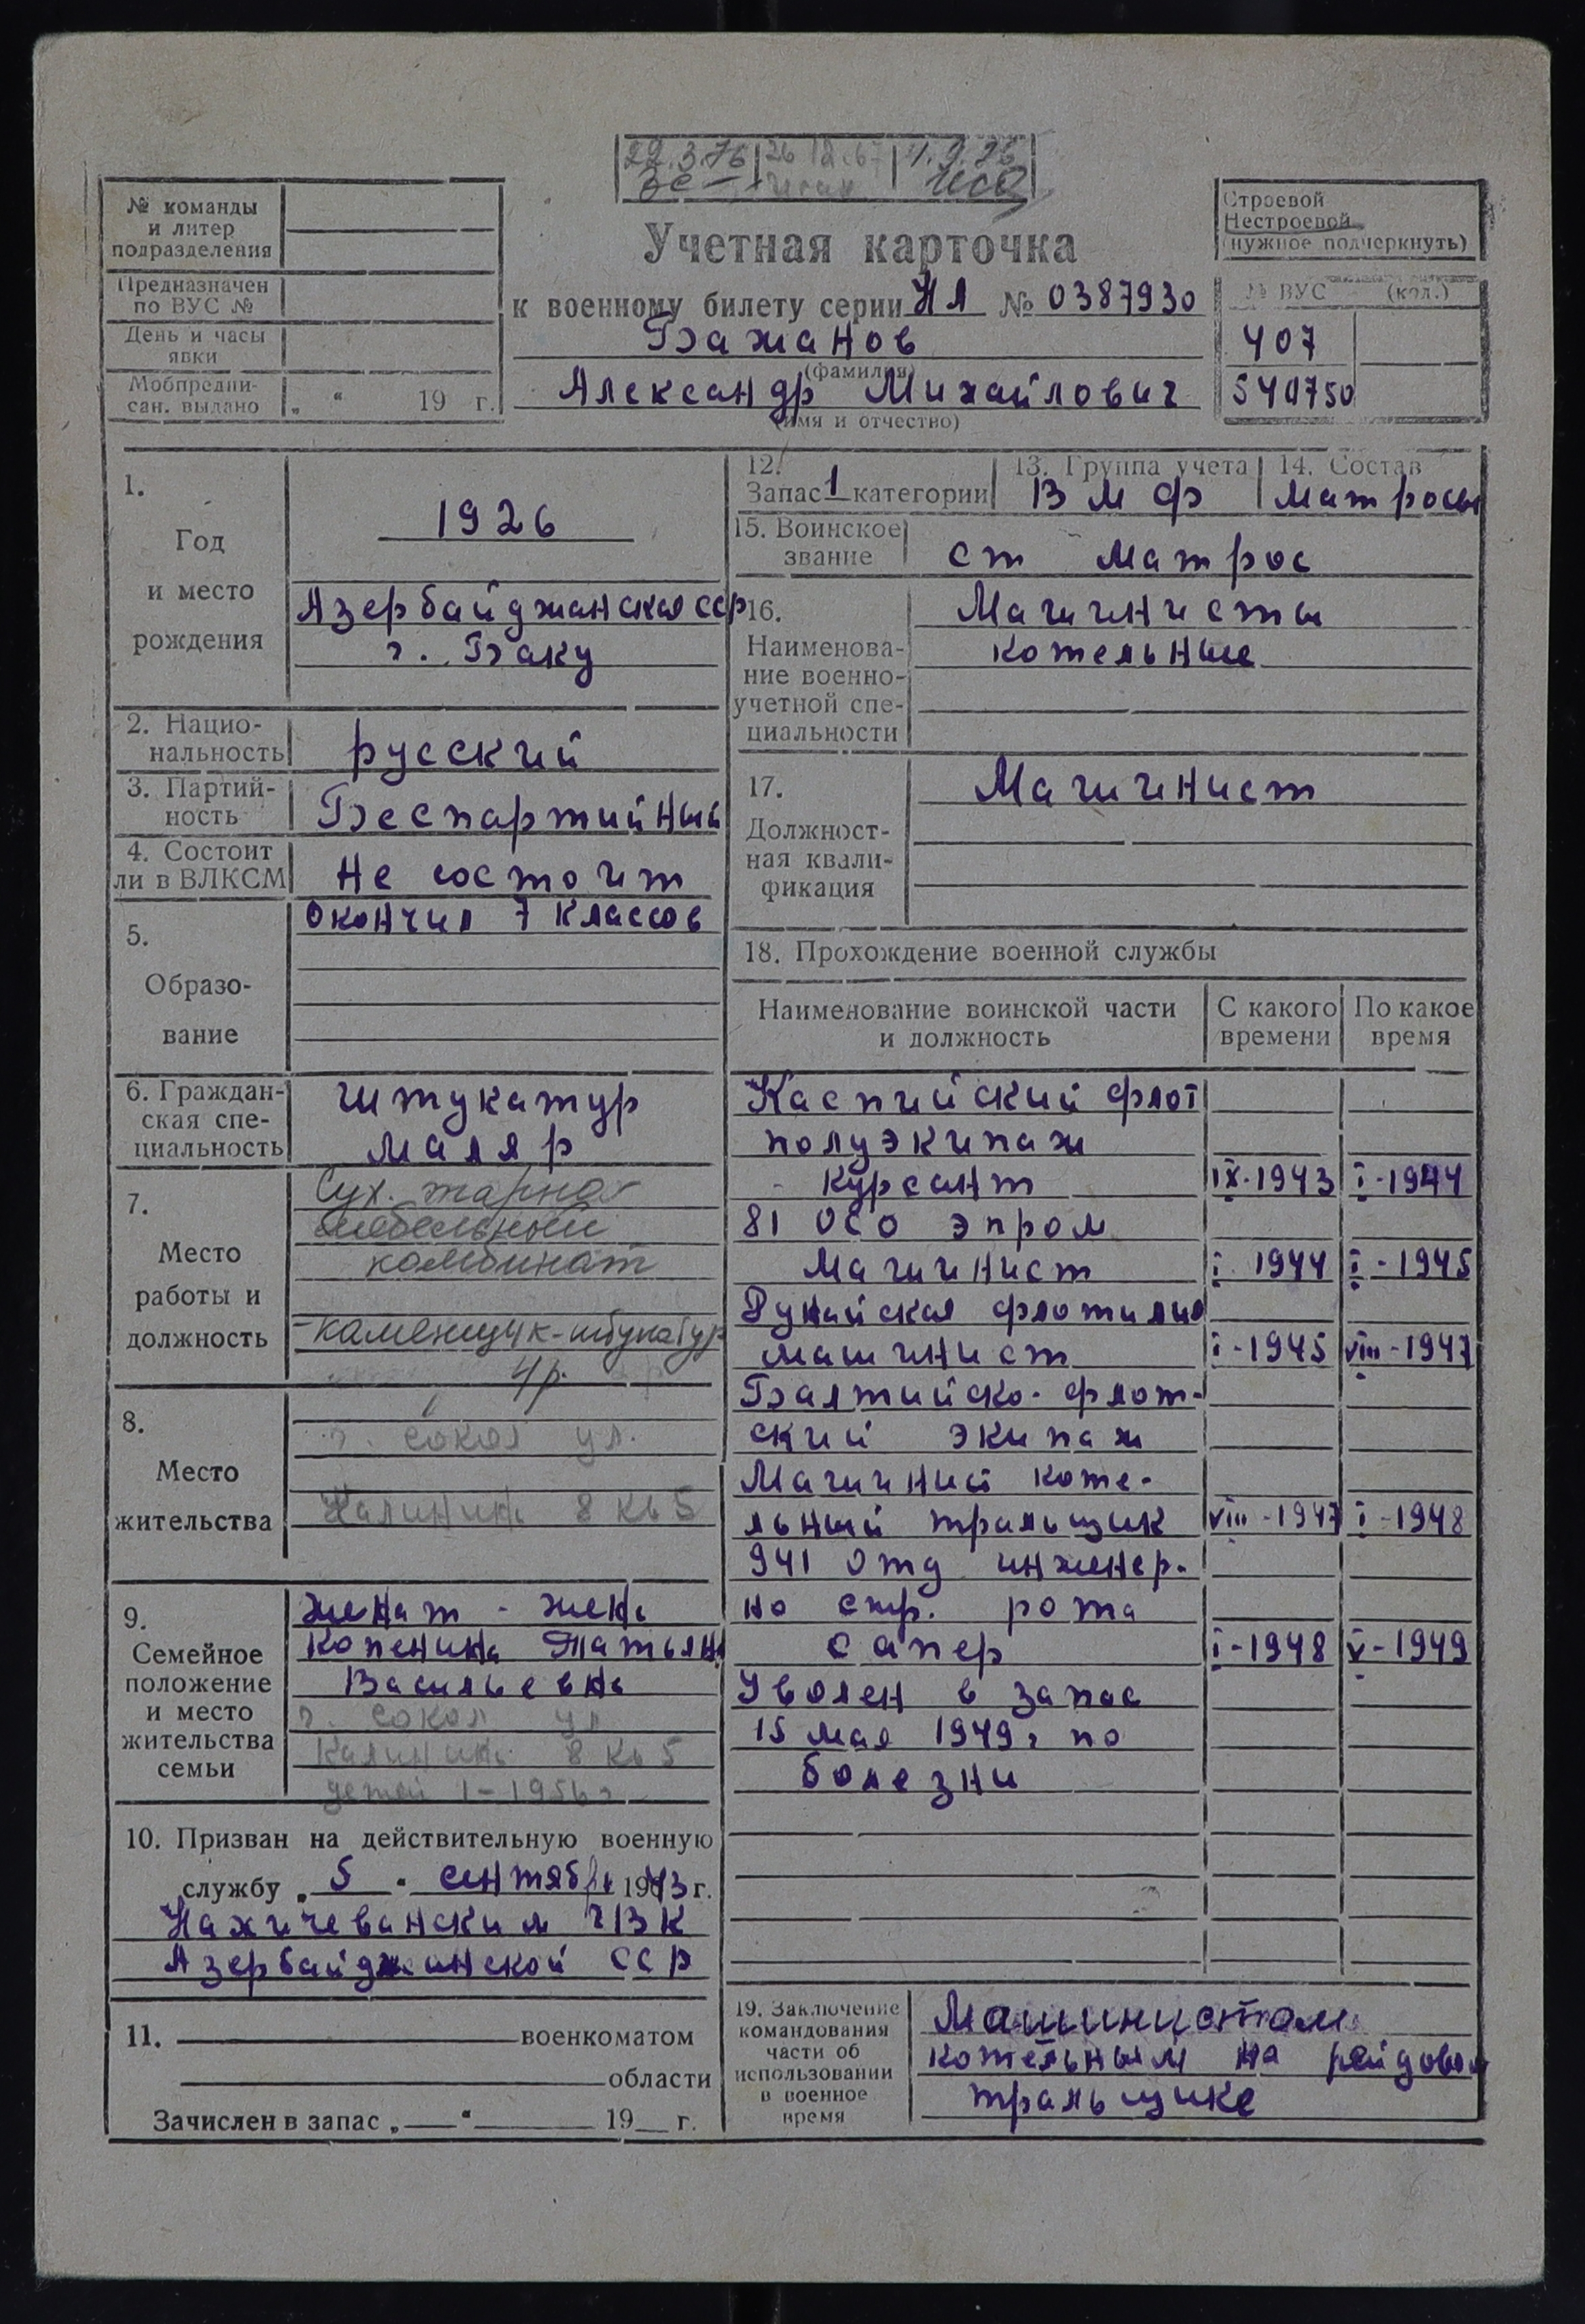 22.3.76 26 12.67 4.9.75
№ команды
и литер
подразделения
Предназначен
по ВУС №
День и часы
явки
Мобпредпи-
сан. выдано „ “ 19 г.
Учетная карточка
к военному билету серии НЯ № 0387930
Бажанов
(фамилия)
Александр Михайлович
(имя и отчество)
Строевой
Нестроевой
(нужное подчеркнуть)
№ ВУС (кол.)
407
540750
1.
Год
и место
рождения
1926
Азербайджанская сср
г. Баку
2. Нацио-
нальность
русский
3. Партий-
ность
Беспартийный
4. Состоит
ли в ВЛКСМ
Не состоит
5.
Образо-
вание
Окончил 7 классов
6. Граждан-
ская спе-
циальность
штукатур
маляр
7.
Место
работы и
должность
Сух. тарно
мебельный
комбинат
-каменщик-штукатур
4р.
8.
Место
жительства
г. сокол ул.
Калинина 8 кв 5
9.
Семейное
положение
и место
жительства
семьи
женат - жена
Копенина Татьяна
Васильевна
г. сокол ул
Калинина 8 кв 5
детей 1 - 1956 г
10. Призван на действительную военную
службу „ 5 “ сентября 1943 г.
Нахичеванским ГВК
Азербайджанской ССР
11. военкоматом
области
Зачислен в запас „ “ 19 г.
12.
Запас 1 категории
13. Группа учета
ВМФ
14. Состав
матросы
15. Воинское
звание
ст матрос
16.
Наименова-
ние военно-
учетной спе-
циальности
Машинисты
котельные
17.
Должност-
ная квали-
фикация
Машинист
18. Прохождение военной службы
Наименование воинской части
и должность
С какого
времени
По какое
время
Каспийский флот
полуэкипаж
- курсант IX-1943 I-1944
81 ОСО эпром
Машинист I 1944 I-1945
Дунайская флотилия
машинист I-1945 VIII-1947
Балтийско-флот-
ский экипаж
Машинист коте-
льный тральщик VIII-1947 I-1948
941 отд инженер-
но стр. рота
сапер I-1948 V-1949
Уволен в запас
15 мая 1949г по
болезни
19. Заключение
командования
части об
использовании
в военное
время
Машинистом
котельным на рейдовом
тральщике